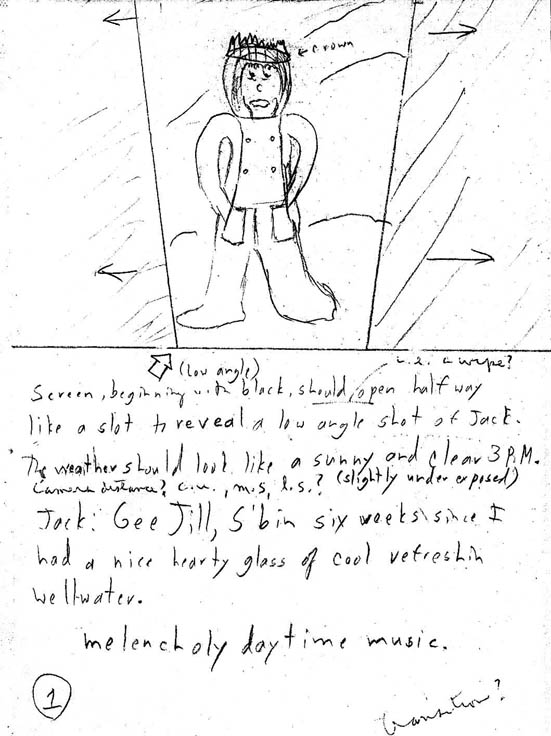 crown
i.e. a wipe?
(low angle)
Screen, beginning with black, should open half way
like a slot to reveal a low angle shot of Jack.
The weather should look like a sunny and clear 3 P.M.
Camera distance? c.u., m.s, l.s.? (slightly under exposed)
Jack: Gee Jill, S'bin six weeks since I
had a nice hearty glass of cool refreshin
wellwater.
melencholy daytime music.
1
transition?